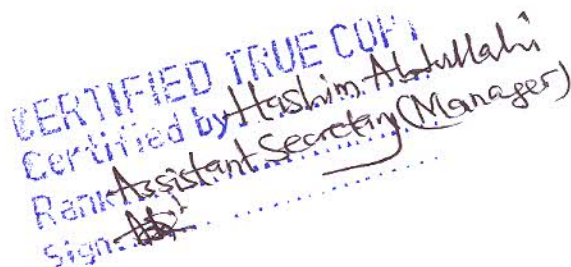 CERTIFIED TRUE COPY
Certified by Hashim Abdullahi
Rank Assistant Secretary (Manager)
Sign